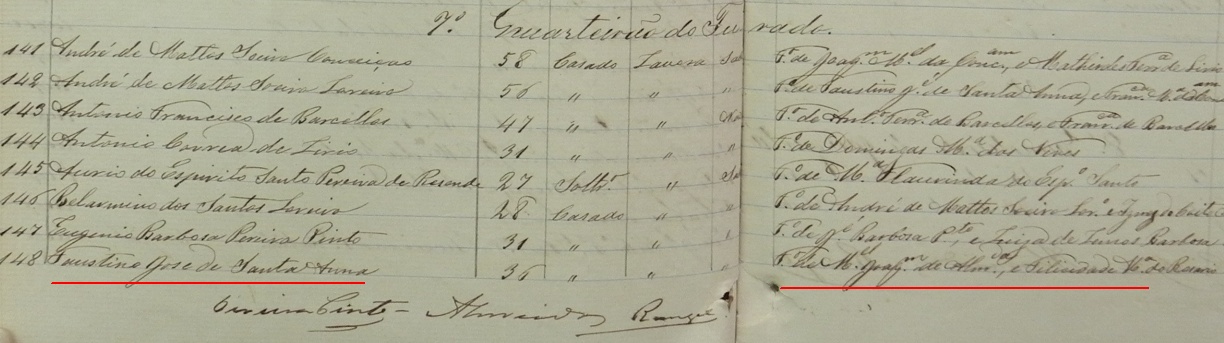 7º Quarteirão do Furado.
141 André de Mattos Conceição 58 Casado Lavora F.º de Joaq.m M.el da Conc.am, e Mathildes
142 André de Mattos Loreiro 56 " " F.º de Faustino J.é de Santa Anna, e Fran.ca M.ª
143 Antonio Francisco de Barcellos 47 " " F.º de Ant.º de Barcellos, e Fran.ca de Barcellos
144 Antonio Correa de Lirio 31 " " " F.º de Domingas M.ª das Neves
145 do Espirito Santo Pereira de Rezende 27 Soltr.º " F.º de M.ª Laurinda do Esp.º Santo
146 Belarmino dos Santos Loreiro 28 Casado " " F.º de André de Mattos
147 Eugenio Barbosa Pereira Pinto 31 " " " F.º de J.é Barbosa P.to, e Luiza de Lemos Barbosa
148 Faustino Jose de Santa Anna 36 " " " F.º de M.el Joaq.m de Alm.da, e Felicidade M.ª do Rosario
Pinto - Almeida Rangel